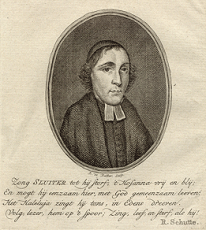 Zong SLUITER tot hij stierf, 't Hosanna vrij en bly;
En mogt hij eenzaam hier, met God gemeenzaam leeven:
Het Haleluja zingt hij tans, in Edens dreeven.
Volg, lezer, hem op 't spoor; Zing, leef, en sterf, als hij!
R. Schutte.